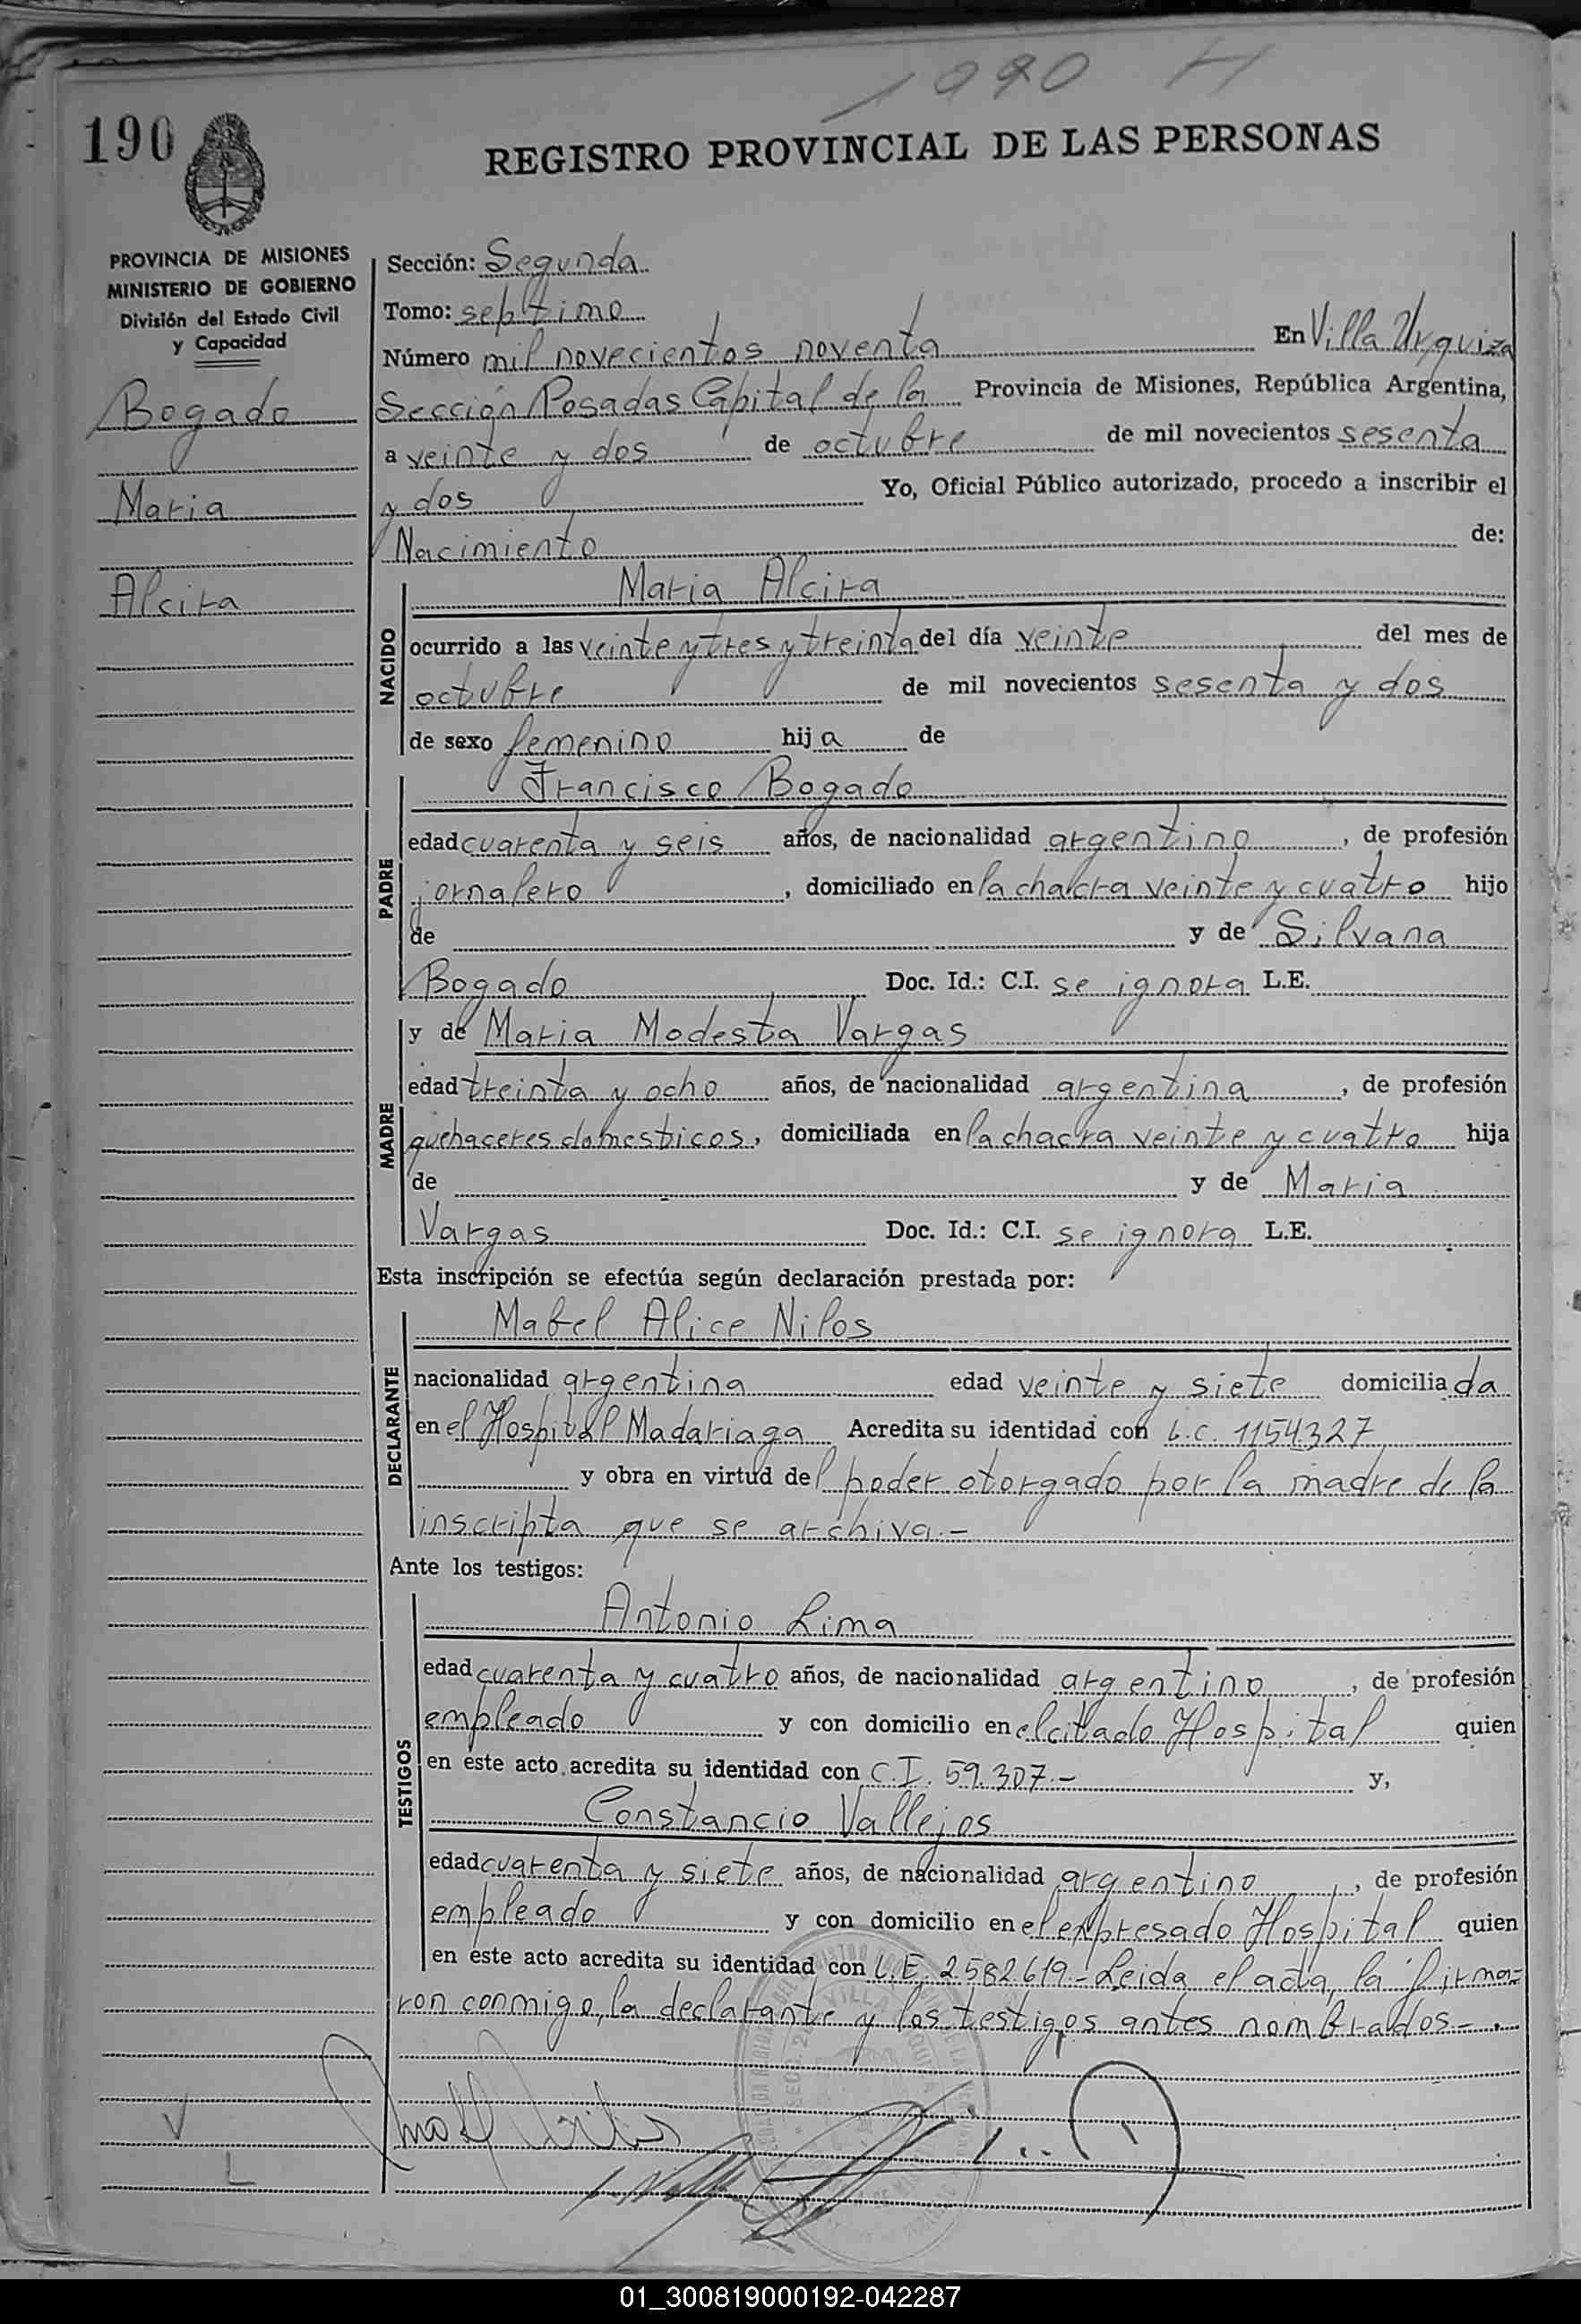 1990 H
190
REGISTRO PROVINCIAL DE LAS PERSONAS
PROVINCIA DE MISIONES
MINISTERIO DE GOBIERNO
División del Estado Civil
y Capacidad
Bogado
Maria
Alcira
Sección: Segunda
Tomo: septimo
Número mil novecientos noventa En Villa Urquiza
Sección Posadas Capital de la Provincia de Misiones, República Argentina,
a veinte y dos de octubre de mil novecientos sesenta
y dos Yo, Oficial Público autorizado, procedo a inscribir el
Nacimiento de:
NACIDO
Maria Alcira
ocurrido a las veinte y tres y treinta del día veinte del mes de
octubre de mil novecientos sesenta y dos
de sexo femenino hija de
PADRE
Francisco Bogado
edad cuarenta y seis años, de nacionalidad argentino, de profesión
jornalero, domiciliado en la chalcra veinte y cuatro hijo
de y de Silvana
Bogado Doc. Id.: C.I. se ignora L.E.
MADRE
y de Maria Modesta Vargas
edad treinta y ocho años, de nacionalidad argentina, de profesión
quehaceres domesticos, domiciliada en la chacra veinte y cuatro hija
de y de Maria
Vargas Doc. Id.: C.I. se ignora L.E.
Esta inscripción se efectúa según declaración prestada por:
DECLARANTE
Mabel Alice Nilos
nacionalidad argentina edad veinte y siete domiciliada
en el Hospital Madariaga Acredita su identidad con L.C. 1154327
y obra en virtud del poder otorgado por la madre de la
inscripta que se archiva.-
Ante los testigos:
TESTIGOS
Antonio Lima
edad cuarenta y cuatro años, de nacionalidad argentino, de profesión
empleado y con domicilio en el citado Hospital quien
en este acto acredita su identidad con C.I. 59.307.- y,
Constancio Vallejos
edad cuarenta y siete años, de nacionalidad argentino, de profesión
empleado y con domicilio en el expresado Hospital quien
en este acto acredita su identidad con L.E. 2.582.619.- Leida el acta, la firma=
ron conmigo, la declarante y los testigos antes nombrados.-
V
L
01_300819000192-042287